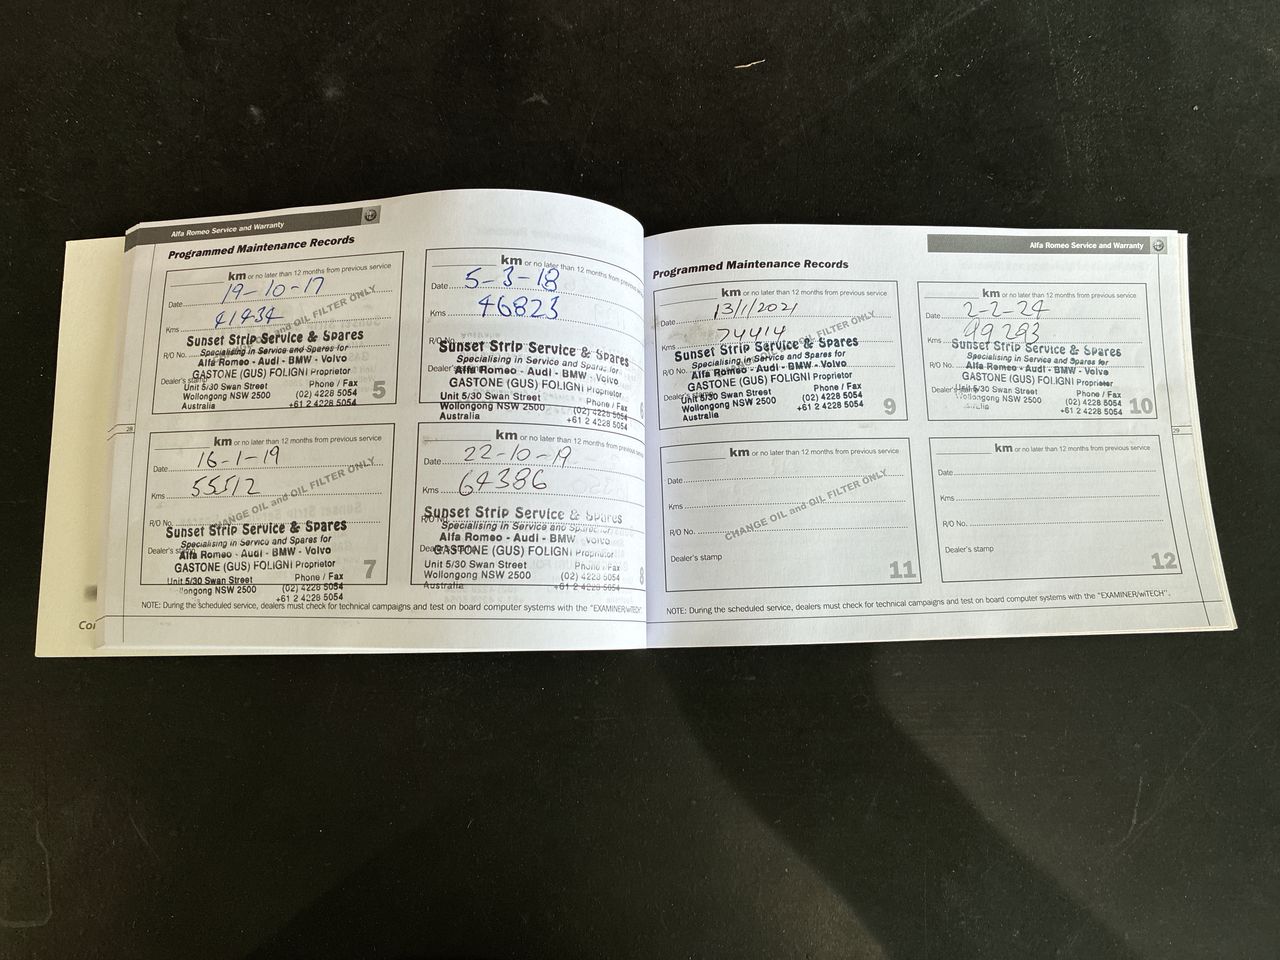 Alfa Romeo Service and Warranty
Programmed Maintenance Records
km or no later than 12 months from previous service
Date 19-10-17
Kms 41434
CHANGE OIL and OIL FILTER ONLY
R/O No.
Dealer's stamp
Sunset Strip Service & Spares
Specialising in Service and Spares for
Alfa Romeo - Audi - BMW - Volvo
GASTONE (GUS) FOLIGNI Proprietor
Unit 5/30 Swan Street Phone / Fax
Wollongong NSW 2500 (02) 4228 5054
Australia +61 2 4228 5054
5
km or no later than 12 months from previous service
Date 5-3-18
Kms 46823
R/O No.
Sunset Strip Service & Spares
Specialising in Service and Spares for
Alfa Romeo - Audi - BMW - Volvo
GASTONE (GUS) FOLIGNI Proprietor
Unit 5/30 Swan Street Phone / Fax
Wollongong NSW 2500 (02) 4228 5054
Australia +61 2 4228 5054
6
km or no later than 12 months from previous service
Date 16-1-19
Kms 55512
CHANGE OIL and OIL FILTER ONLY
R/O No.
Dealer's stamp
Sunset Strip Service & Spares
Specialising in Service and Spares for
Alfa Romeo - Audi - BMW - Volvo
GASTONE (GUS) FOLIGNI Proprietor
Unit 5/30 Swan Street Phone / Fax
Wollongong NSW 2500 (02) 4228 5054
+61 2 4228 5054
7
km or no later than 12 months from previous service
Date 22-10-19
Kms 64386
R/O No.
Sunset Strip Service & Spares
Specialising in Service and Spares for
Alfa Romeo - Audi - BMW - Volvo
GASTONE (GUS) FOLIGNI Proprietor
Unit 5/30 Swan Street Phone / Fax
Wollongong NSW 2500 (02) 4228 5054
Australia +61 2 4228 5054
8
NOTE: During the scheduled service, dealers must check for technical campaigns and test on board computer systems with the "EXAMINER/wiTECH".
28
Alfa Romeo Service and Warranty
Programmed Maintenance Records
km or no later than 12 months from previous service
Date 13/1/2021
Kms 74414
CHANGE OIL and OIL FILTER ONLY
R/O No.
Dealer's stamp
Sunset Strip Service & Spares
Specialising in Service and Spares for
Alfa Romeo - Audi - BMW - Volvo
GASTONE (GUS) FOLIGNI Proprietor
Unit 5/30 Swan Street Phone / Fax
Wollongong NSW 2500 (02) 4228 5054
Australia +61 2 4228 5054
9
km or no later than 12 months from previous service
Date 2-2-24
Kms 99293
R/O No.
Dealer's stamp
Sunset Strip Service & Spares
Specialising in Service and Spares for
Alfa Romeo - Audi - BMW - Volvo
GASTONE (GUS) FOLIGNI Proprietor
Unit 5/30 Swan Street Phone / Fax
Wollongong NSW 2500 (02) 4228 5054
+61 2 4228 5054
10
km or no later than 12 months from previous service
Date
Kms
CHANGE OIL and OIL FILTER ONLY
R/O No.
Dealer's stamp
11
km or no later than 12 months from previous service
Date
Kms
R/O No.
Dealer's stamp
12
NOTE: During the scheduled service, dealers must check for technical campaigns and test on board computer systems with the "EXAMINER/wiTECH".
29